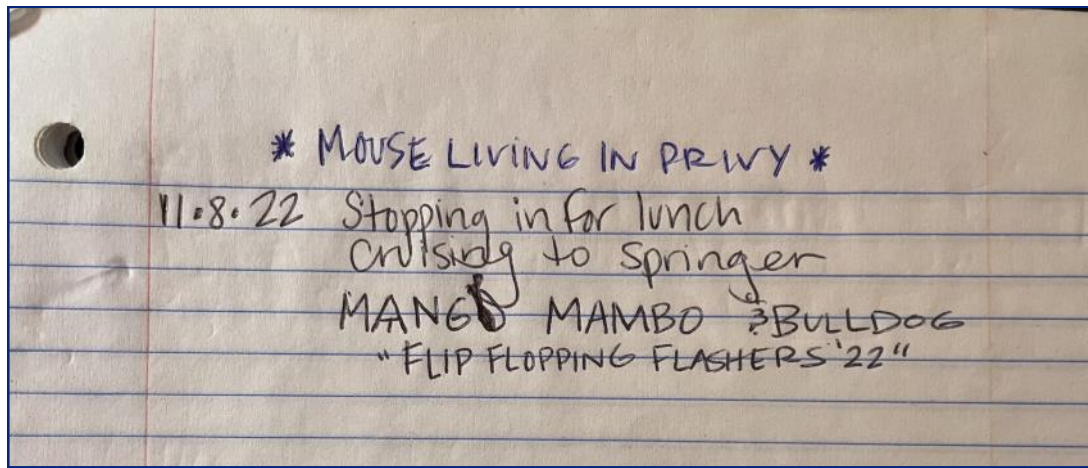 * MOUSE LIVING IN PRIVY *
11.8.22 Stopping in for lunch
cruising to Springer
MANGO MAMBO & BULLDOG
"FLIP FLOPPING FLASHERS '22"